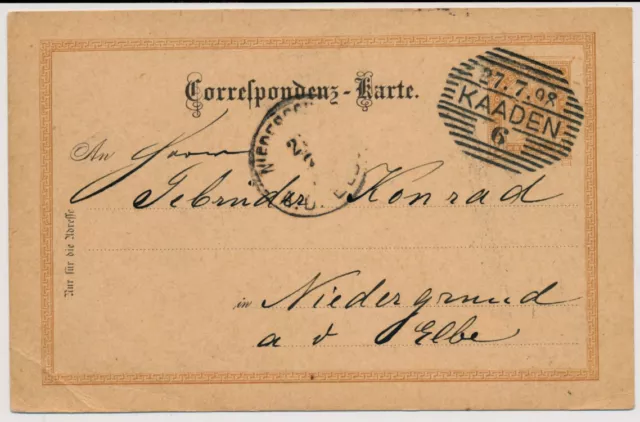 Correspondenz-Karte.
27.7.98
KAADEN
6
An Herrn
Gebruder Konrad
in Niedergrund
a d Elbe
Nur für die Adresse